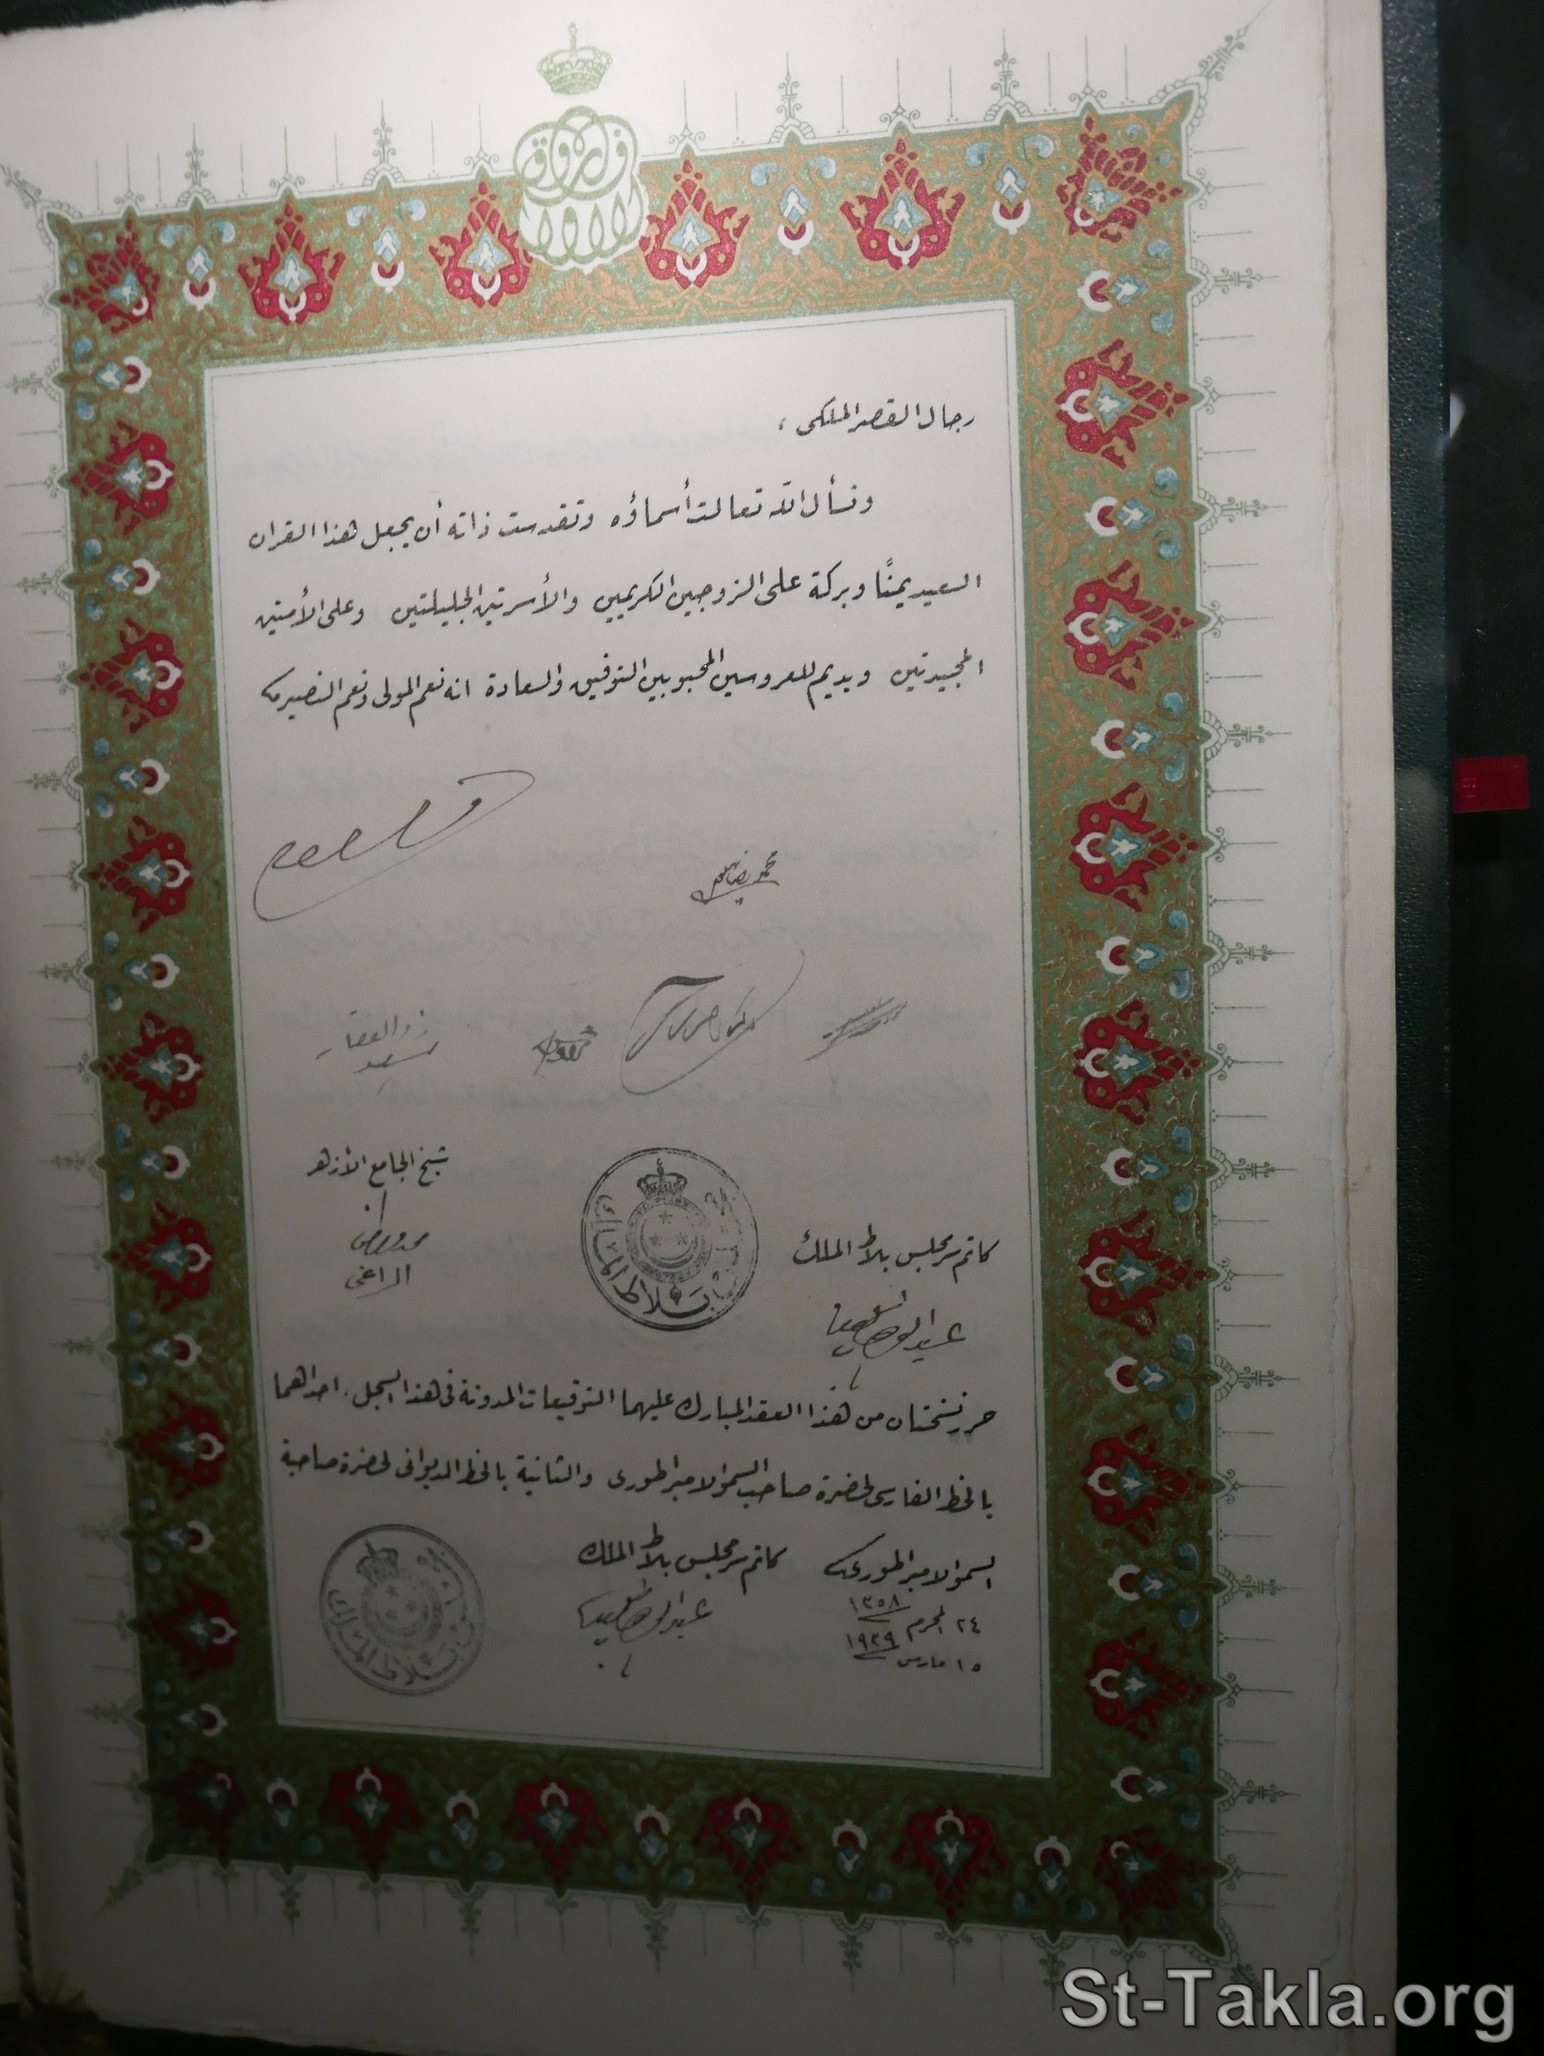 فاروق
رجال القصر الملكى ،
ونسأل الله تعالت أسماؤه وتقدست ذاته أن يجعل هذا القران
السعيد يمنًا وبركة على الزوجين الكريمين والأسرتين الجليلتين وعلى الأمتين
المجيدتين ويديم للعروسين المحبوبين التوفيق والسعادة انه نعم المولى ونعم النصير
محمد رضا
ذو الفقار
شيخ الجامع الأزهر
المراغى
كاتم سر مجلس بلاط الملك
بلاط الملك
حرر نسختان من هذا العقد المبارك عليهما التوقيعات المدونة فى هذا السجل، احداهما
بالخط الفارسى لحضرة صاحب السمو الامبراطورى والثانية بالخط الديوانى لحضرة صاحبة
السمو الامبراطورى
كاتم سر مجلس بلاط الملك
٢٤ المحرم ١٣٥٨
١٥ مارس ١٩٣٩
بلاط الملك
St-Takla.org